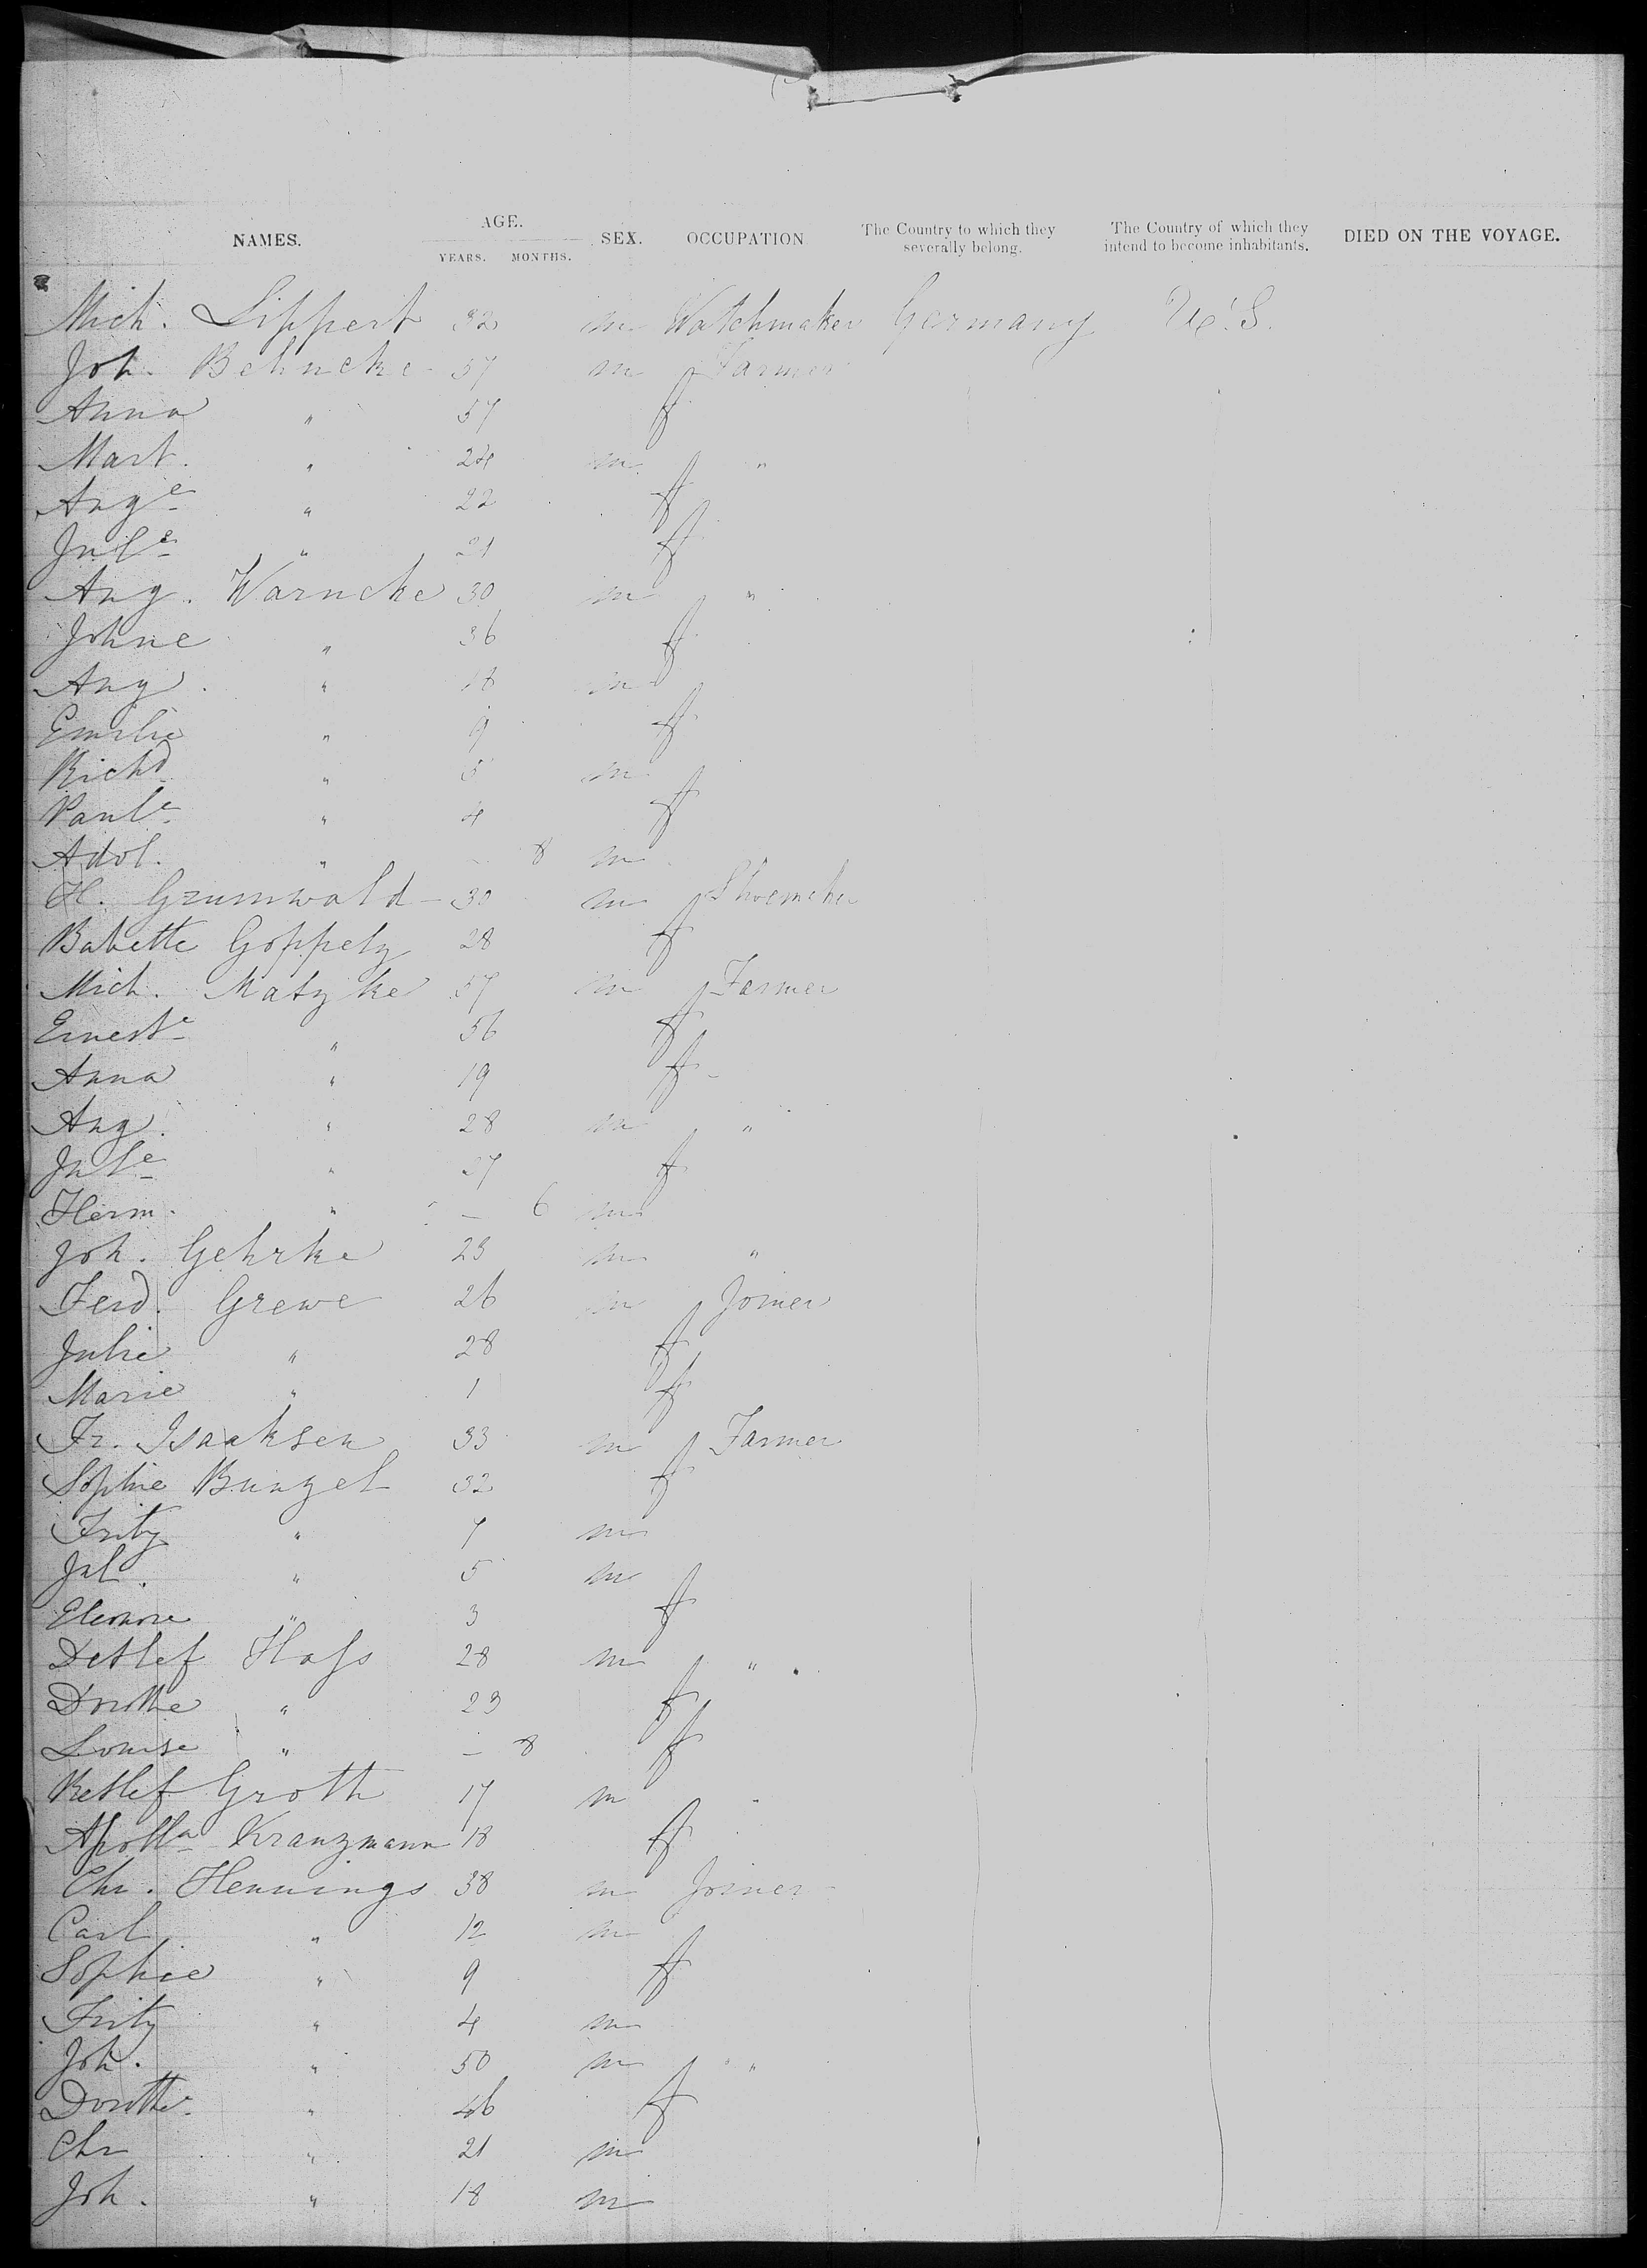 NAMES. AGE. YEARS. MONTHS. SEX. OCCUPATION The Country to which they severally belong. The Country of which they intend to become inhabitants. DIED ON THE VOYAGE.
Mich. Lippert 32 m Watchmaker Germany U.S.
Joh. Behncke 57 m Farmer
Anna " 57 f
Mart. " 24 m "
Auge " 22 f
Jule " 21 f
Aug. Warncke 30 m "
Johne " 36 f
Aug. " m
Emilie " 9 f
Richd " 5 m
Paule " 4 f
Adol. " - 8 m
H. Grumwald - 30 m Shoemaker
Babette Goppelz 28 f
Mich. Matzke 57 m Farmer
Erneste " 56 f
Anna " 19 f -
Aug. " 28 m "
Jule " 27 f
Herm. " - 6 m
Joh. Gehrke 23 m "
Ferd. Grewe 26 m Joiner
Julie " 28 f
Marie " 1 f
Fr. Isaaksen 33 m Farmer
Sophie Bunzel 32 f
Fritz " 7 m
Jul. " 5 m
Eleonore " 3 f
Detlef Hass 28 m "
Dorothe " 23 f
Louise " - 8 f
Detlef Groth 17 m "
Apolla Kranzmann 18 f
Chr. Hennings 38 m Joiner
Carl " 12 m
Sophie " 9 f
Fritz " 4 m
Joh. " 50 m "
Dorothe " 46 f
Chr " 21 m
Joh. " 18 m